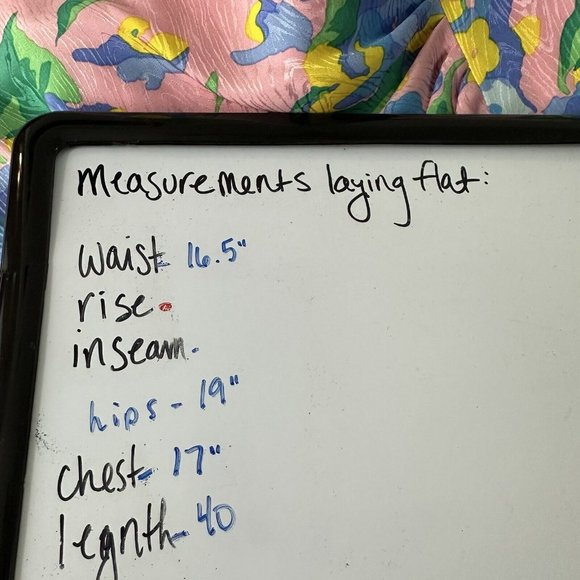 measurements laying flat:
waist- 16.5"
rise-
inseam-
hips - 19"
chest- 17"
legnth- 40